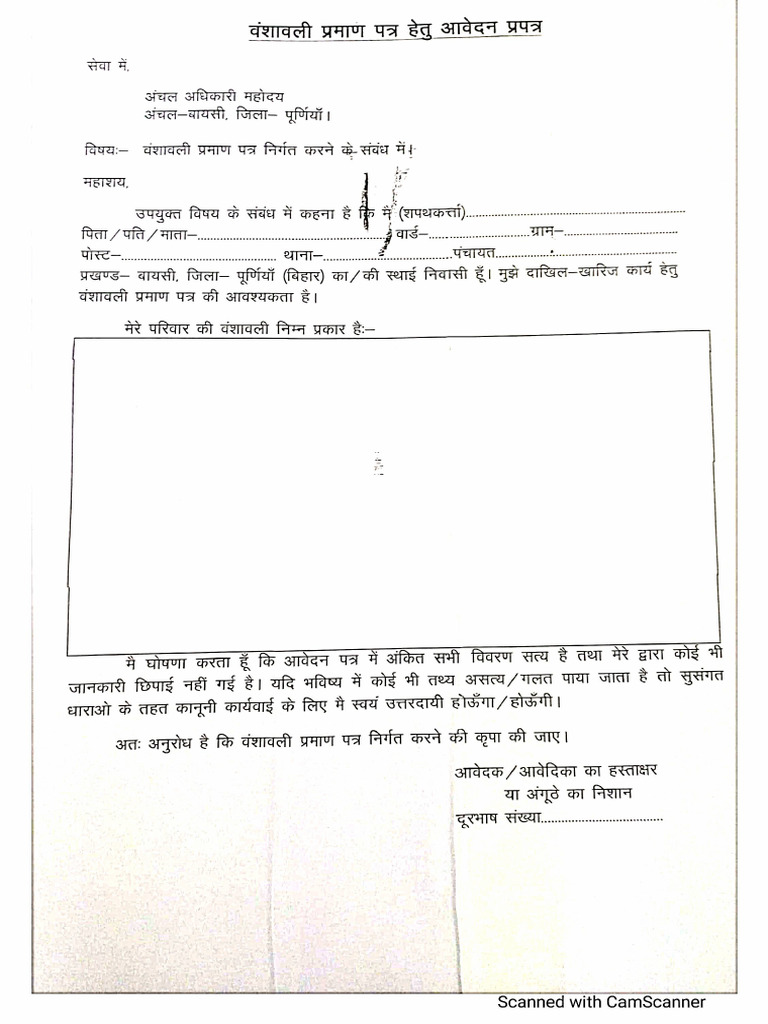 वंशावली प्रमाण पत्र हेतु आवेदन प्रपत्र
सेवा में,
अंचल अधिकारी महोदय
अंचल–बायसी, जिला– पूर्णियाँ।
विषयः– वंशावली प्रमाण पत्र निर्गत करने के संबंध में।
महाशय,
उपयुक्त विषय के संबंध में कहना है कि मैं (शपथकर्त्ता)..........................................................
पिता/पति/माता–.................................................. वार्ड–...........................ग्राम–..............................
पोस्ट–......................................... थाना–...................................पंचायत................................................
प्रखण्ड– बायसी, जिला– पूर्णियाँ (बिहार) का/की स्थाई निवासी हूँ। मुझे दाखिल–खारिज कार्य हेतु
वंशावली प्रमाण पत्र की आवश्यकता है।
मेरे परिवार की वंशावली निम्न प्रकार हैः–
मै घोषणा करता हूँ कि आवेदन पत्र में अंकित सभी विवरण सत्य है तथा मेरे द्वारा कोई भी
जानकारी छिपाई नहीं गई है। यदि भविष्य में कोई भी तथ्य असत्य/गलत पाया जाता है तो सुसंगत
धाराओ के तहत कानूनी कार्यवाई के लिए मै स्वयं उत्तरदायी होऊँगा/होऊँगी।
अतः अनुरोध है कि वंशावली प्रमाण पत्र निर्गत करने की कृपा की जाए।
आवेदक/आवेदिका का हस्ताक्षर
या अंगूठे का निशान
दूरभाष संख्या...................................
Scanned with CamScanner